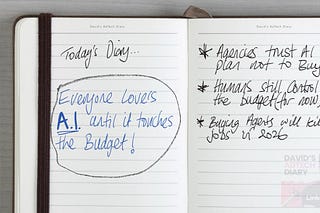 David's AdTech Diary
Today's Diary...
Everyone Lovers
A.I. until it touches
the Budget!
David's AdTech Diary
* Agencies trust AI
plan not to Buy
* Humans still control
the budget (for now)
* Buying Agents will kill
jobs in 2026
DAVID'S
ADTECH
DIARY
Link